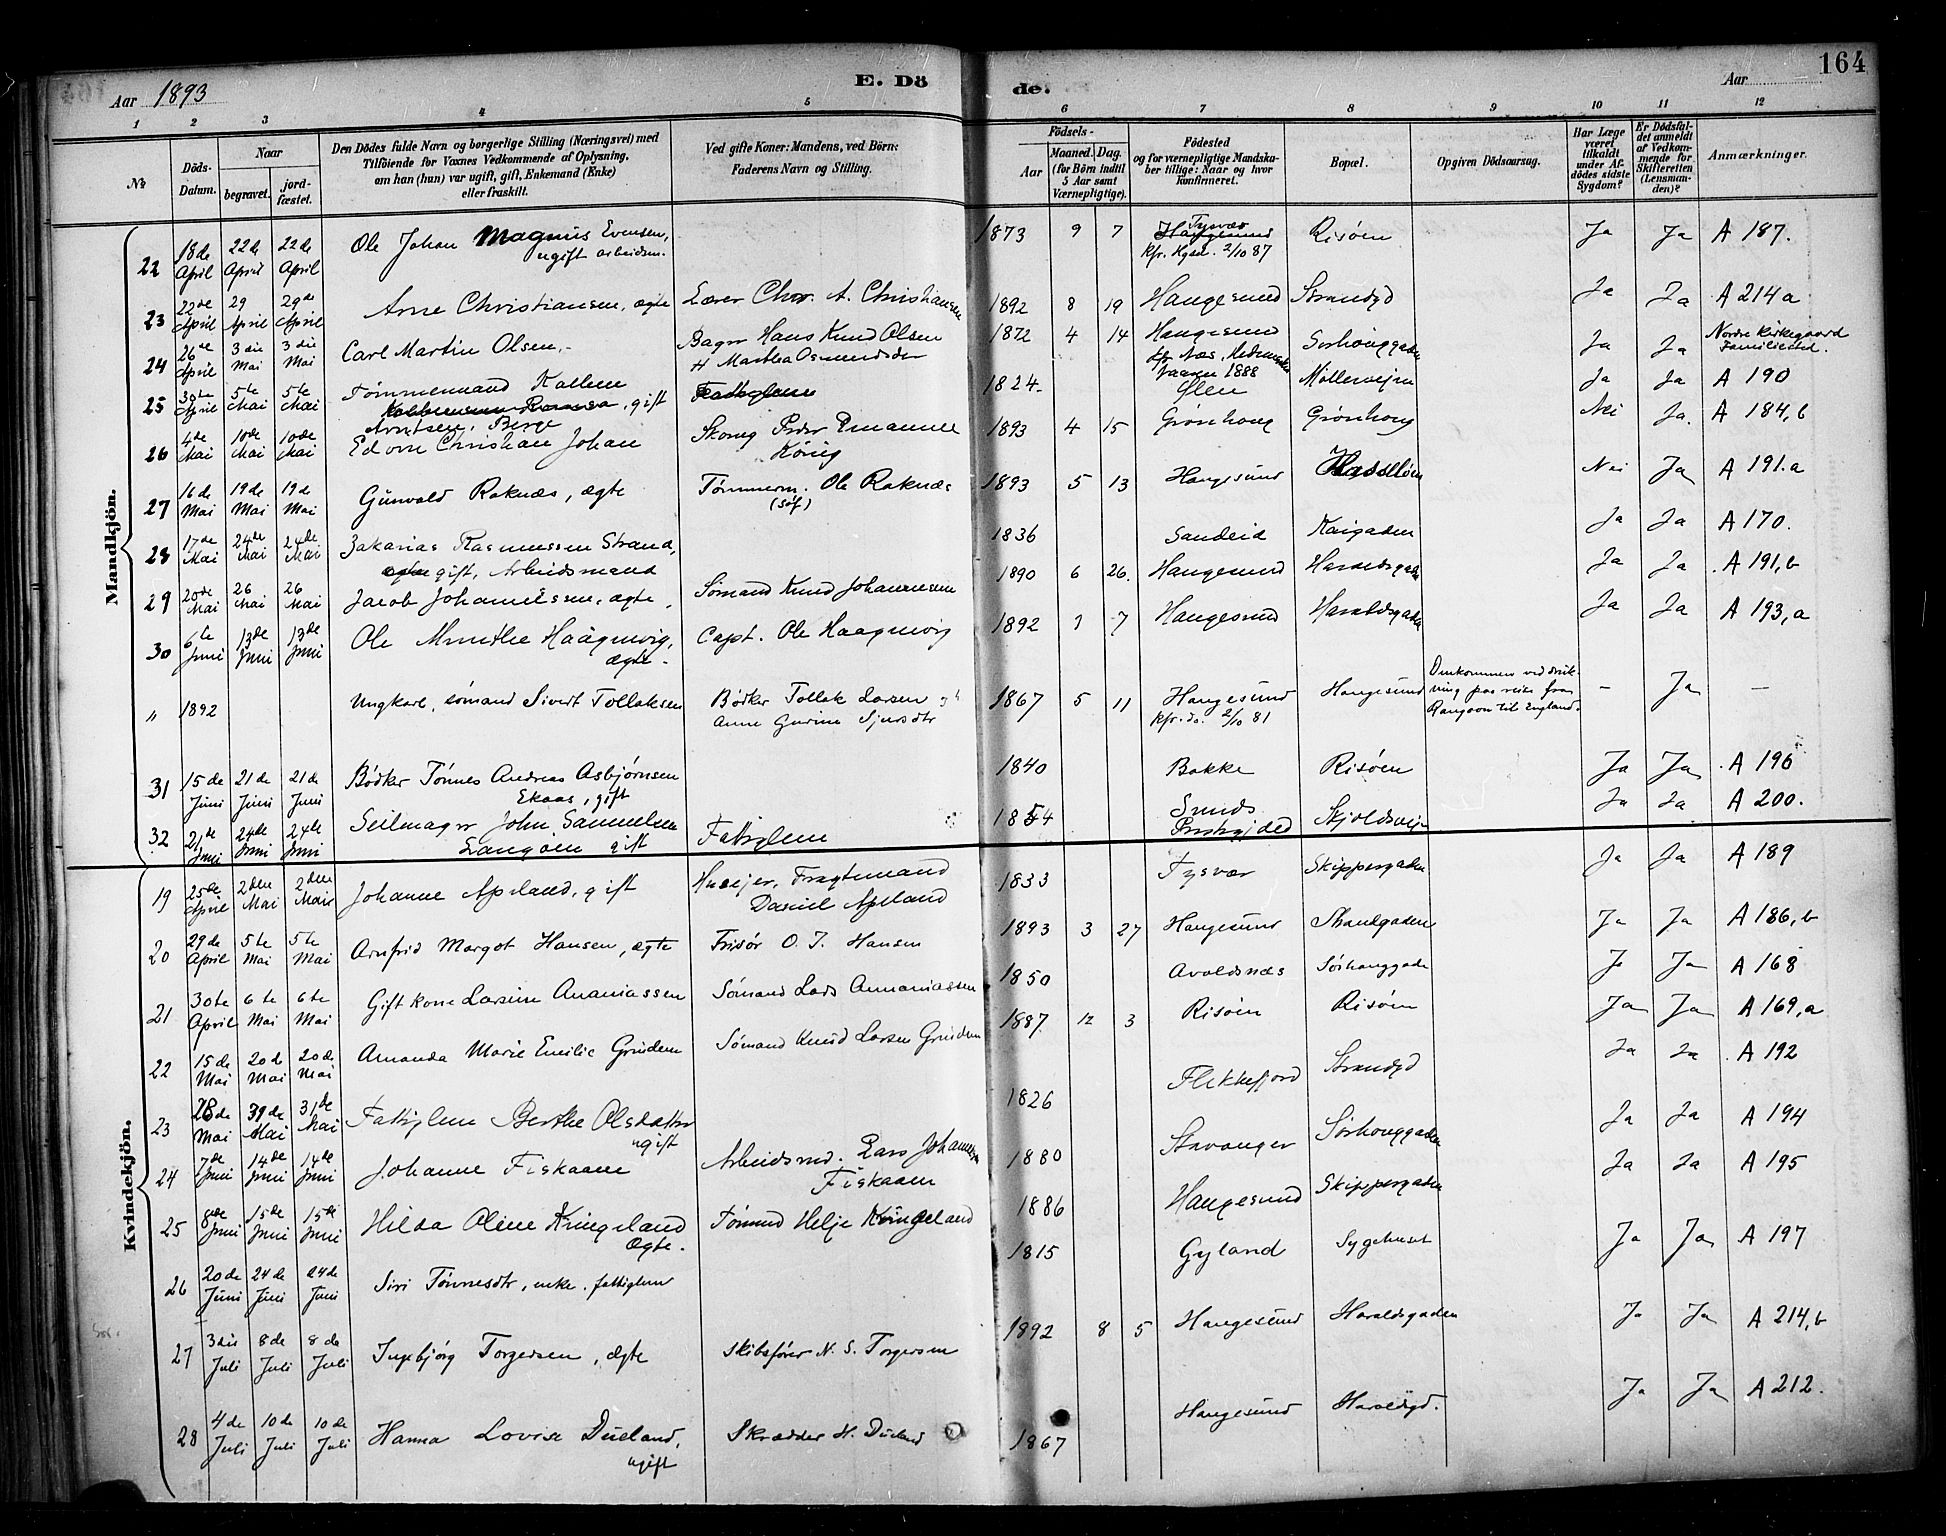 164
Aar 1893
E. Dö de.
Aar
1 2 3 4 5 6 7 8 9 10 11 12
№
Döds-Datum.
Naar
begravet.
jord-fæstet.
Den Dödes fulde Navn og borgerlige Stilling (Næringsvei) med
Tilföiende for Voxnes Vedkommende af Oplysning,
om han (hun) var ugift, gift, Enkemand (Enke)
eller fraskilt.
Ved gifte Koner: Mandens, ved Börn:
Faderens Navn og Stilling.
Födsels-
Aar
Maaned. Dag.
(for Börn indtil
5 Aar samt
Værnepligtige).
Födested
og for værnepligtige Mandska-
ber tillige: Naar og hvor
konfirmeret.
Bopæl.
Opgiven Dödsaarsag.
Har Læge
været
tilkaldt
under Af-
dödes sidste
Sygdom?
Er Dödsfal-
det anmeldt
af Vedkom-
mende for
Skifteretten
(Lensman-
den)?
Anmærkninger.
Mandkjön.
22 18de April 22de April 22de April Ole Johan Magnus Evensen, ugift arbeidsm. 1873 9 7 Haugesund Tysvær Kfr. Hgsd. 2/10 87 Risøen Ja Ja A 187.
23 22de April 29 April 29de April Arne Christiansen, ægte Lærer Chr. A. Christiansen 1892 8 19 Haugesund Strandgd Ja Ja A 214 a
24 26de April 3die Mai 3die Mai Carl Martin Olsen,- Bager Hans Knud Olsen H Martha Osmundsdr 1872 4 14 Haugesund 1888 Sørhauggaden Ja Ja Nordre Kirkegaard Familiested.
25 30te April 5te Mai 5te Mai Tømmermand Arntsen, Berge gift Fattiglem 1824. Ølen Møllerveien Ja Ja A 190
26 4de Mai 10de Mai 10de Mai Edvin Christian Johan Skomg Peder Emanuel König 1893 4 15 Grønhoug Grønhoug Nei Ja. A 184, b
27 16de Mai 19de Mai 19de Mai Gunvald Roknæs, ægte Tømmerm. Ole Roknæs (søf) 1893 5 13 Haugesund Hasseløen Nei Ja A 191. a
28 17de Mai 24de Mai 24de Mai Zakarias Rasmussen Strand, gift, Arbeidsmand 1836 Sandeid Kaigaden Ja Ja A 170.
29 20de Mai 26 Mai 26 Mai Jacob Johannessen, ægte, Sømand Knud Johannesen 1890 6 26. Haugesund Haraldsgaden Ja Ja A 191, b
30 6te Juni 13de Juni 13de Juni Ole Munthe Haagenvig, ægte. Capt. Ole Haagenvig 1892 1 7 Haugesund Haraldsgaden Ja Ja A 193, a
" 1892 Ungkarl, sømand Sivert Tollaksen Bødker Tollak Larsen Anne Gurine Sjursdtr 1867 5 11 Haugesund kfr. do. 2/10 81 Haugesund Omkommen ved drukning paa reise fra Rangoon til England. - Ja -
31 15de Juni 21de Juni 21de Juni Bødker Tønnes Andreas Asbjørnsen Ekaas, gift 1840 Bakke Risøen Ja Ja A 196
32 21de Juni 24de Juni 24de Juni Seilmager John Samuelsen Langøen gift Fattiglem 1854 Sunds Præstegjeld Skjoldsveien Ja Ja A 200.
Kvindekjön.
19 25de April 2den Mai 2den Mai Johanne Apeland, gift Huseier, Fragtemand Daniel Apeland 1833 Tysvær Skippergaden Ja Ja A 189
20 29de April 5te Mai 5te Mai Arnfrid Margot Hansen, ægte Frisør O. J. Hansen 1893 3 27 Haugesund Strandgaden Ja Ja A 186, b
21 30te April 6te Mai 6te Mai Gift kone Larsine Ananiassen Sømand Lars Annaniassen 1850 Avaldsnæs Sørhauggade Ja Ja A 168
22 15de Mai 20de Mai 20de Mai Amanda Marie Emilie Grindem Sømand Knud Larsen Grindem 1887. 12 3 Risøen Risøen Ja Ja A 169, a
23 28de Mai 31de Mai 31de Mai Fattiglem Berthe Olsdatter ugift 1826 Flekkefjord Strandgd Ja Ja A 192
24 7de Juni 14de Juni 14de Juni Johanne Fiskaaen Arbeidsmd. Lars Johannesen Fiskaaen 1880 Stavanger Sørhauggaden Ja Ja A 194
25 8de Juni 15de Juni 15de Juni Hilda Oline Kringeland Ægte. Tømmd Helje Kringeland 1886 Haugesund Skippergaden Ja Ja A 195
26 20de Juni 24de Juni 24de Juni Siri Tønnesdtr, enke. fattiglem 1815 Gyland Sygehuset Ja Ja A 197
27 3die Juli 8de Juli 8de Juli Ingebjørg Torgersen, ægte Skibsfører N. S. Torgersen 1892 8 5 Haugesund Haraldsgaden Ja Ja A 214, b
28 4de Juli 10de Juli 10de Juli Hanna Lovise Dueland, ugift Skrædder H. Dueland 1867 Haugesund Haraldsgd. Ja Ja A 212.